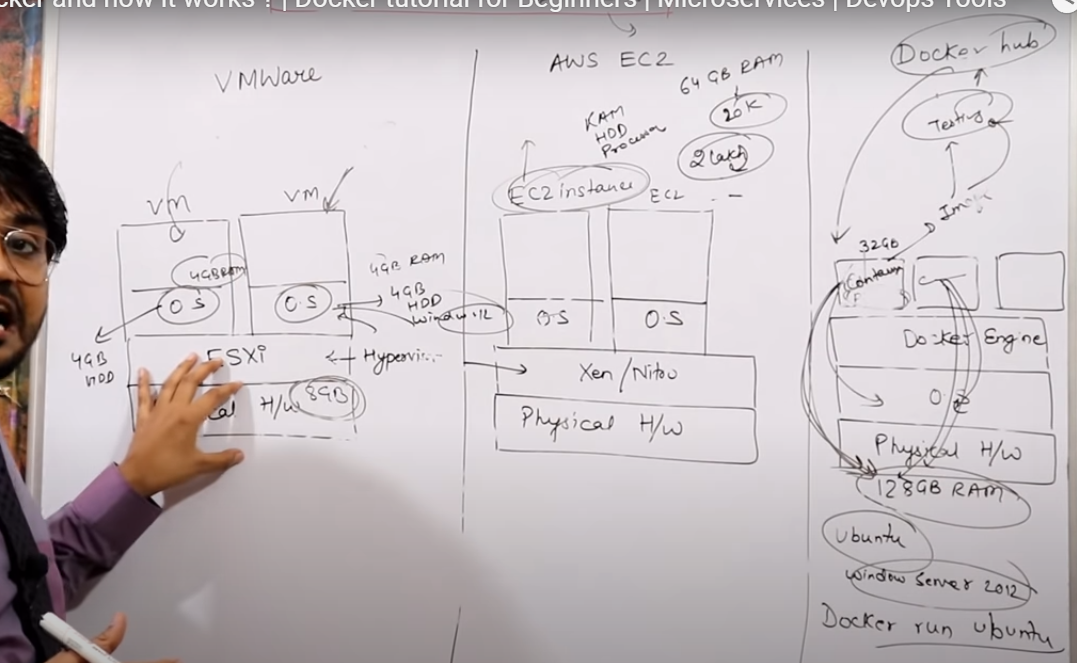 cker and how it works ? | Docker tutorial for Beginners | Microservices | Devops Tools
VMWare
VM
VM
4GB RAM
O.S
O.S
4GB
HDD
4GB RAM
4GB
HDD
Window 12
ESXi
Hypervi
H/W 8GB
AWS EC2
64 GB RAM
20K
2 Lakh
RAM
HDD
Processor
EC2 instance
EC2
OS
O.S
Xen/Nitro
Physical H/W
Docker hub
Testing
Imag
32GB
Container
C
Docker Engine
O.S
Physical H/W
128GB RAM
Ubuntu
Window Server 2012
Docker run ubuntu